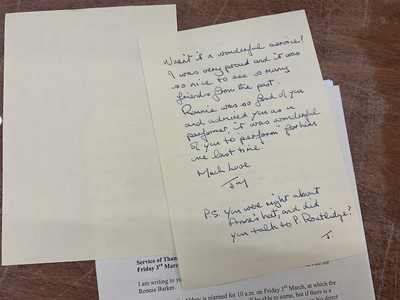 Wasn't it a wonderful service?
I was very proud and it was
so nice to see so many
friends from the past.
Ronnie was so fond of you
and admired you as a
performer, it was wonderful
of you to "perform" for him
one last time.
Much Love
Joy
P.S. You were right about
Anne's hat, and did
you talk to P. Routledge?
J.
Service of Than
Friday 3rd March,
I am writing to yo
Ronnie Barker.
Abbey is planned for 10 a.m. on Friday 3rd March, at which the
be able to come, but if there is a
his direct